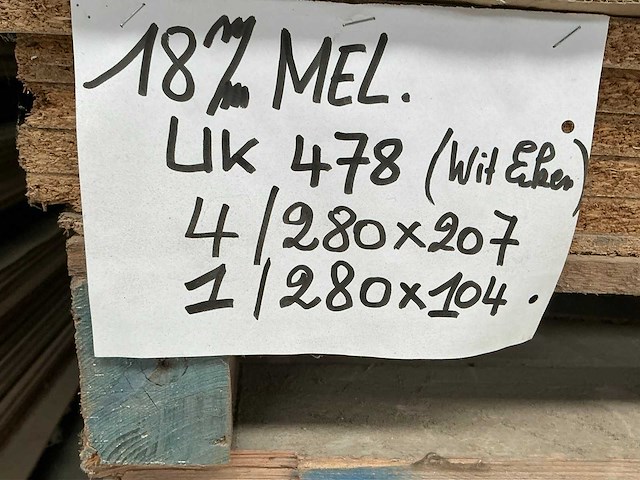 18 m/m MEL.
UK 478 (Wit Eiken)
4 / 280 x 207
1 / 280 x 104.